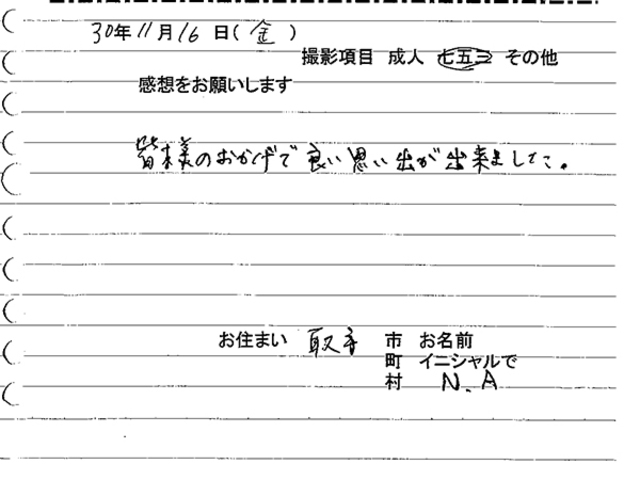 30年11月16日(金)
撮影項目 成人 七五三 その他
感想をお願いします
皆様のおかげで良い思い出が出来ました。
お住まい 取手 市 お名前
町 イニシャルで
村 N.A